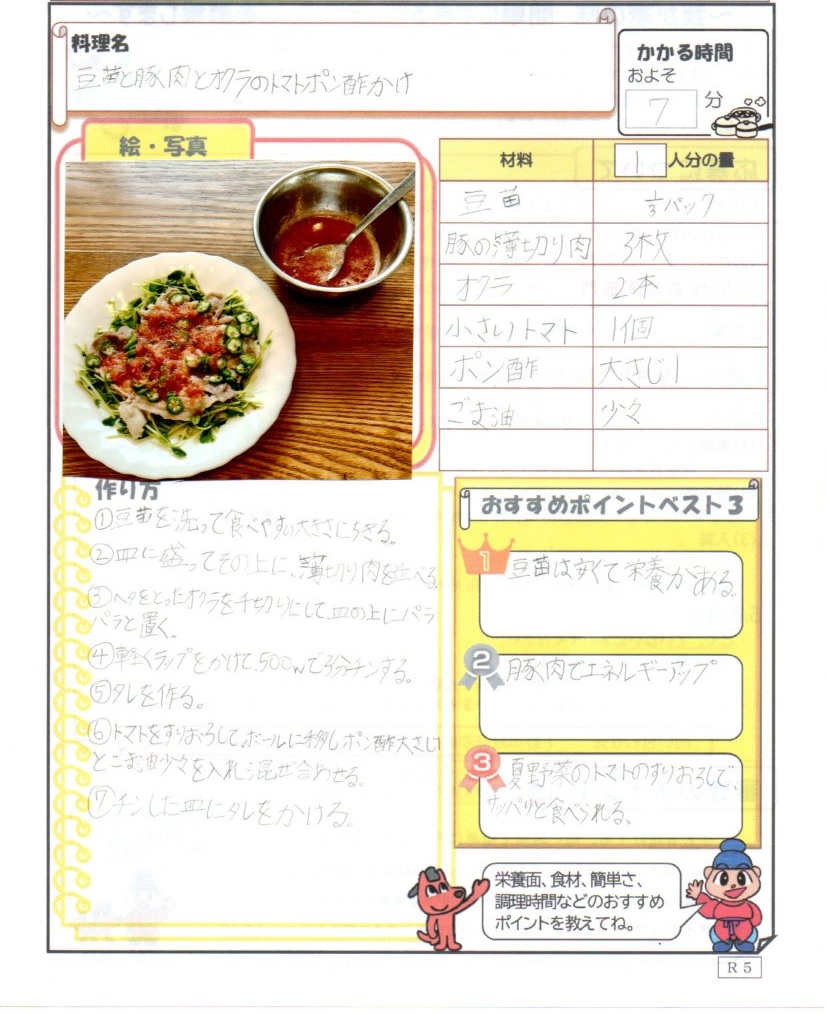 料理名
豆苗と豚肉とオクラのトマトポン酢かけ
かかる時間
およそ
7 分
絵・写真
材料 1 人分の量
豆苗 1/3パック
豚の薄切り肉 3枚
オクラ 2本
小さいトマト 1個
ポン酢 大さじ1
ごま油 少々
作り方
①豆苗を洗って食べやすい大きさにちぎる。
②皿に盛ってその上に、薄切り肉を並べる
③ヘタをとったオクラを千切りにして、皿の上にパラ
パラと置く。
④軽くラップをかけて、500wで3分チンする。
⑤タレを作る。
⑥トマトをすりおろして、ボールに移しポン酢大さじ1
とごま油少々を入れ混ぜ合わせる。
⑦チンした皿にタレをかける。
おすすめポイントベスト3
1
豆苗は、安くて栄養がある。
2
豚肉でエネルギーアップ
3
夏野菜のトマトのすりおろしで、
サッパリと食べられる。
栄養面、食材、簡単さ、
調理時間などのおすすめ
ポイントを教えてね。
R5